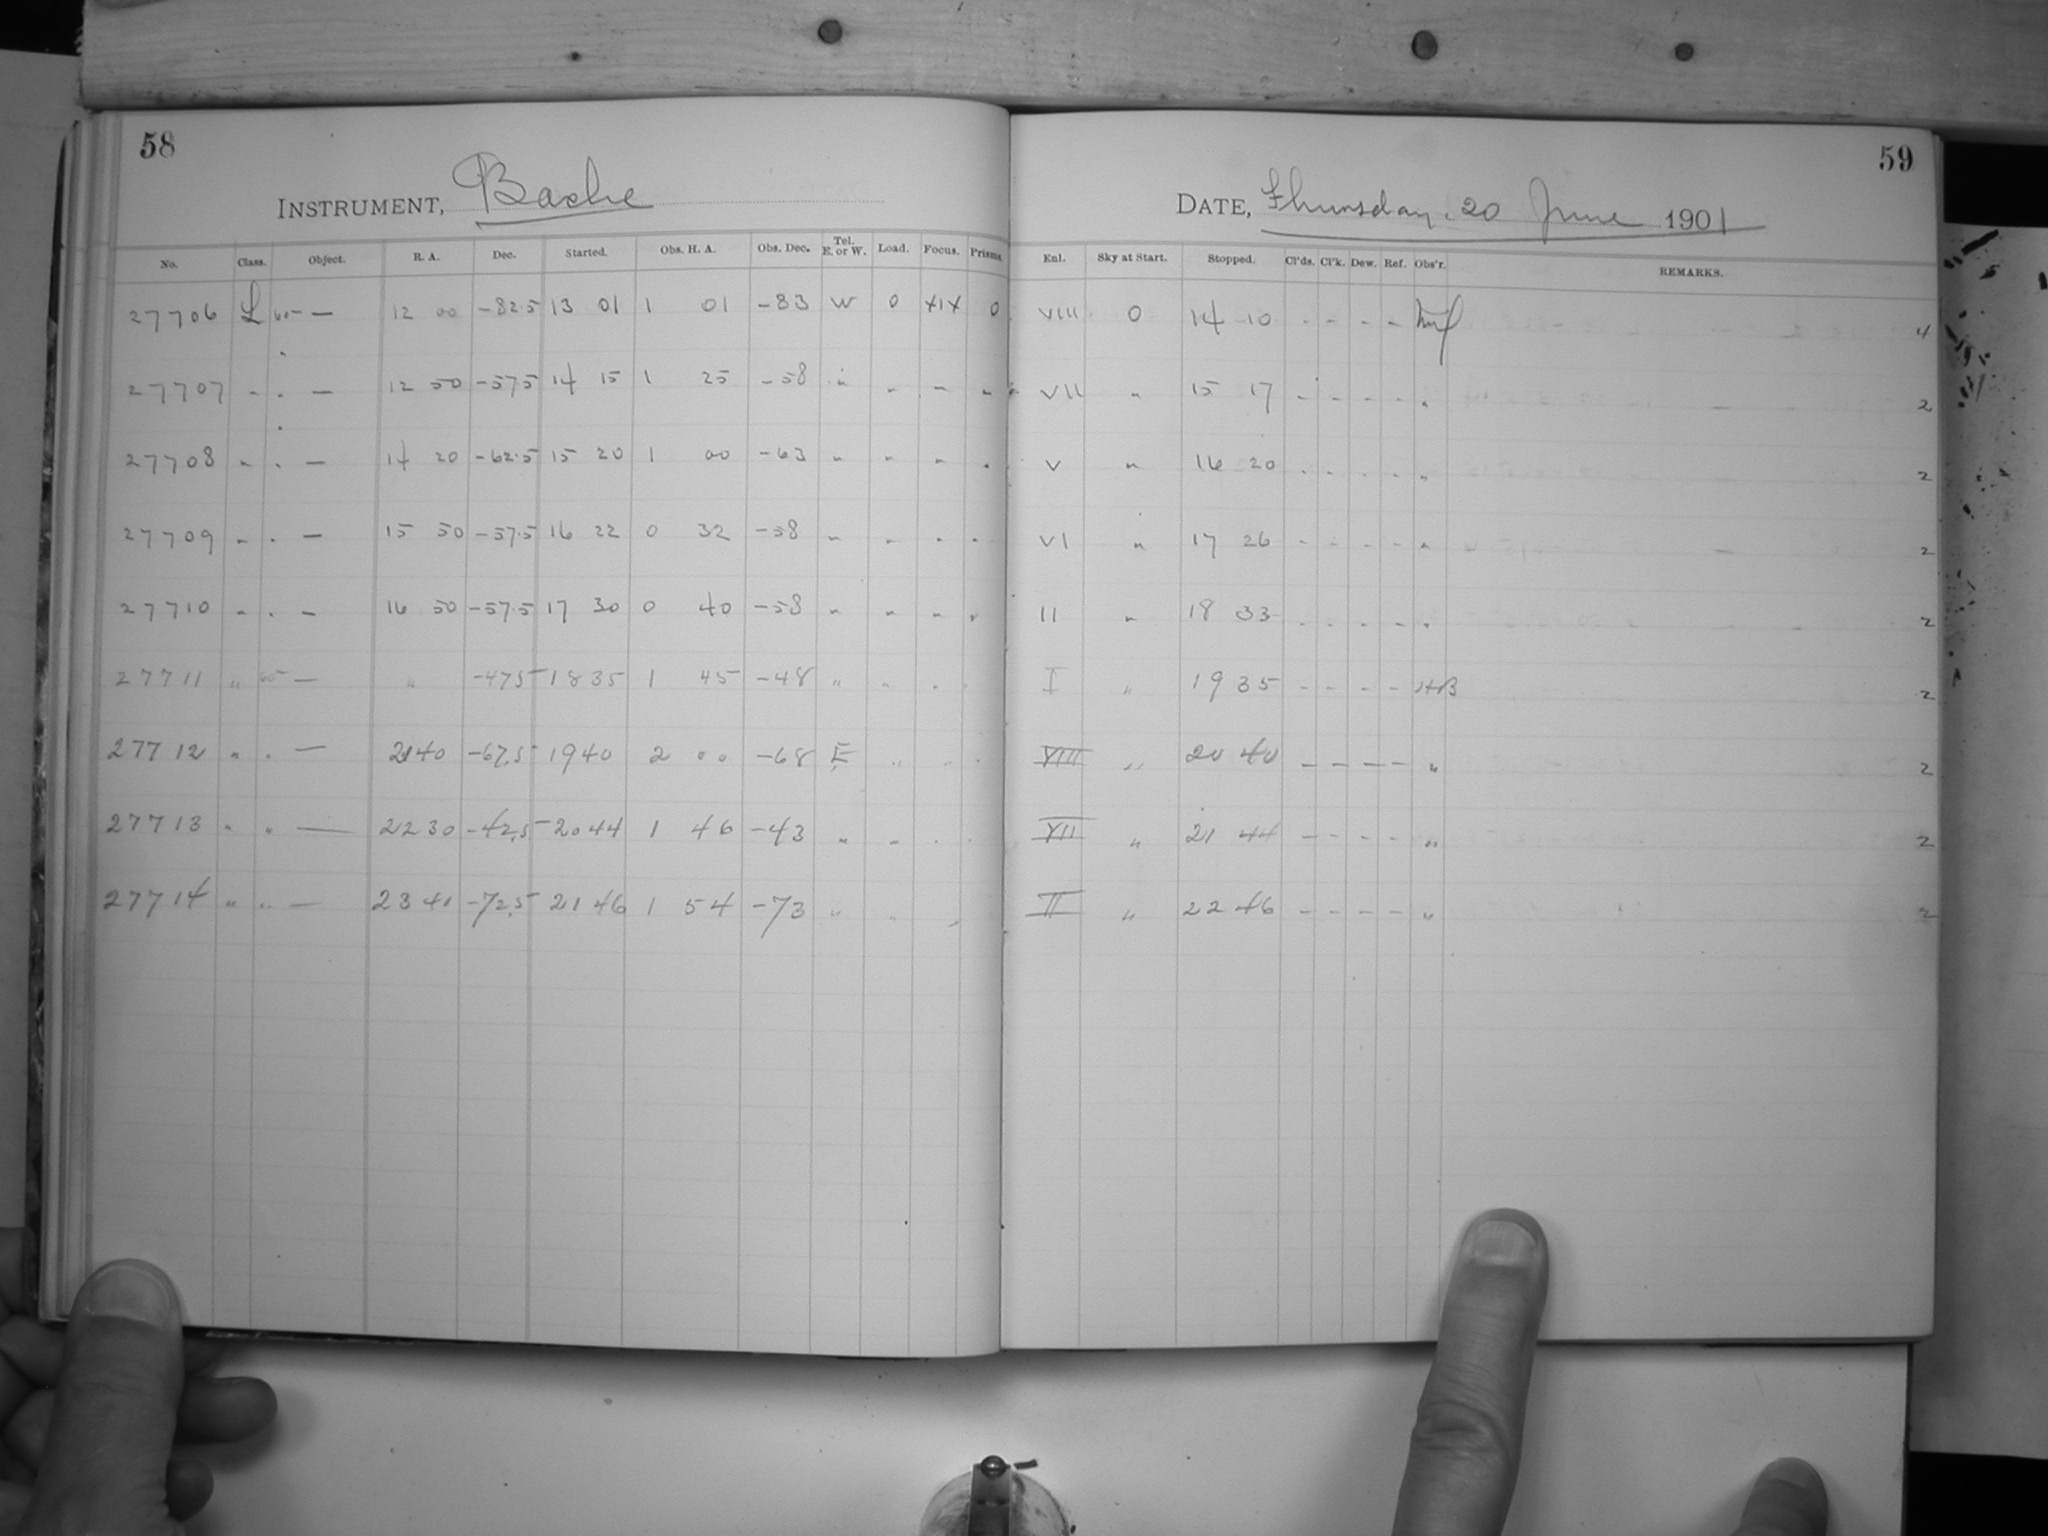 58
INSTRUMENT, Bache
No. Class. Object. R. A. Dec. Started. Obs. H. A. Obs. Dec. Tel. E. or W. Load. Focus. Prisms.
27706 L 60- — 12 00 -82.5 13 01 1 01 -83 W 0 XIX 0
27707 " " — 12 50 -57.5 14 15 1 25 -58 " " " "
27708 " " — 14 20 -62.5 15 20 1 00 -63 " " " "
27709 " " — 15 50 -57.5 16 22 0 32 -58 " " " "
27710 " " — 16 50 -57.5 17 30 0 40 -58 " " " "
27711 " 60- — " -47.5 18 35 1 45 -48 " " " "
27712 " " — 21 40 -67.5 19 40 2 00 -68 E " " "
27713 " " — 22 30 -42.5 20 44 1 46 -43 " " " "
27714 " " — 23 40 -72.5 21 46 1 54 -73 " " "
59
DATE, Thursday, 20 June 1901
Enl. Sky at Start. Stopped. Cl'ds. Cl'k. Dew. Ref. Obs'r. REMARKS.
VIII 0 14 10 - - - - 4
VII " 15 17 - - - - " 2
V " 16 20 - - - - " 2
VI " 17 26 - - - - " 2
II " 18 33 - - - - " 2
I " 19 35 - - - - 2
VIII " 20 40 - - - - " 2
VII " 21 44 - - - - " 2
II " 22 46 - - - - " 2